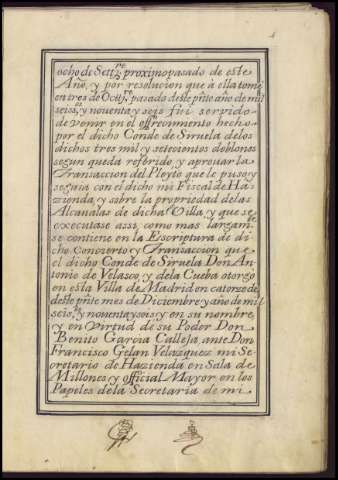 ocho de Settre proximo pasado de este
Año, y por resolucion que à ella tomè
en tres de Octtre pasado deste pnte año de mil
seissos y noventa y seis fui servido
de venir en el offrecimiento hecho
por el dicho Conde de Siruela de los
dichos tres mil y setecientos doblones
segun queda referido y aprovar la
Transaccion del Pleyto que le puso y
seguia con el dicho mi Fiscal de Ha-
zienda, y sobre la propriedad de las
Alcaualas de dicha Villa, y que se
executase assi, como mas largamte
se contiene en la Escriptura de di
cho Concierto y Transaccion que
el dicho Conde de Siruela Don An-
tonio de Velasco y de la Cueba otorgó
en esta Villa de Madrid en catorze de
deste pnte mes de Diciembre y año de mil
seissos y noventa y seis y en su nombre
y en Virtud de su Poder Don
Benito Garcia Calleja ante Don
Francisco Gelan Velazquez mi Se-
cretario de Hazienda en Sala de
Millones y official Mayor en los
Papeles de la Secretaria de mi